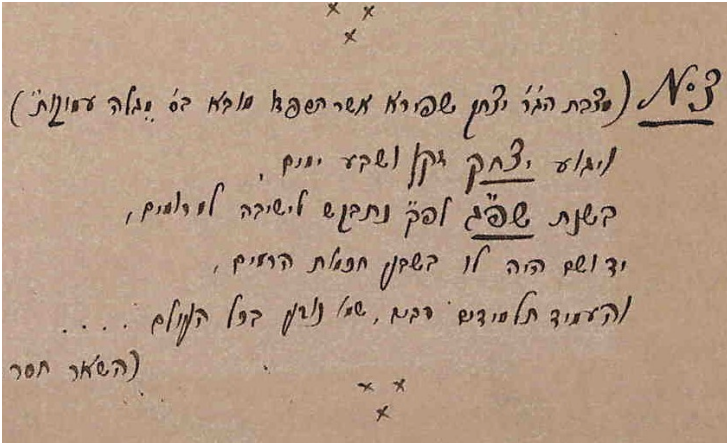 צ״א (מצבת הג׳ר׳ יצחק שפירא אשר הספדו מובא בס׳ „מגלה עמוקות״)
ויגוע יצחק זקן ושבע ימים,
בשנת שפ״ג לפ״ק נתבקש לישיבה למרומים,
יד ושם היה לו בשבעת חכמות הרמים,
והעמיד תלמידים רבים, שמו נודע בכל העולם .....
(השאר חסר